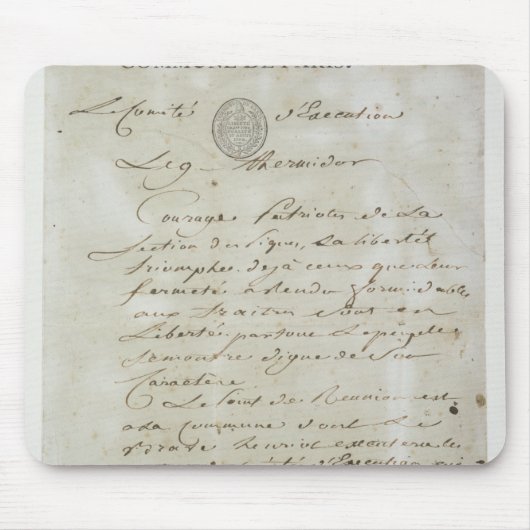 COMMUNE DE PARIS.
Le Comité d'Execution
Le 9 thermidor
Courage Patriotes de La
Section des Piques, La liberté
triomphe deja ceux que Leur
fermeté a Rendu formidables
aux traitres sont en
Liberté partout Le peuple
se montre digne de son
Caractère
Le Point de Reunion est
a La Commune dont Le
brave henriot executera les
d'Execution qui